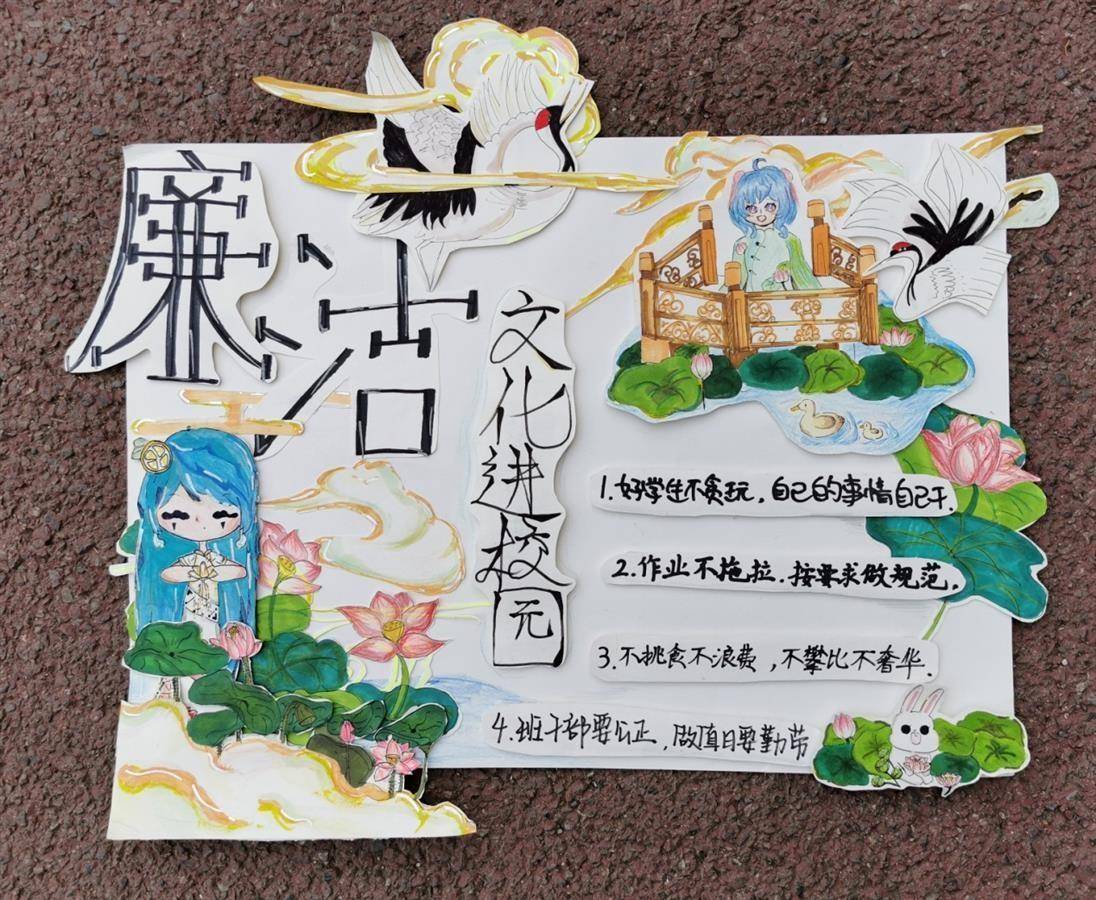 廉洁
文化进校园
1.好学生不贪玩，自己的事情自己干.
2.作业不拖拉.按要求做规范.
3.不挑食不浪费，不攀比不奢华.
4.班干部要公正，做值日要勤劳